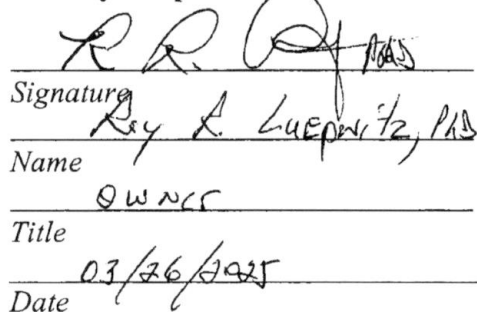 R. R.
Signature
Roy R. Luepnitz, PhD
Name
Owner
Title
03/26/2025
Date